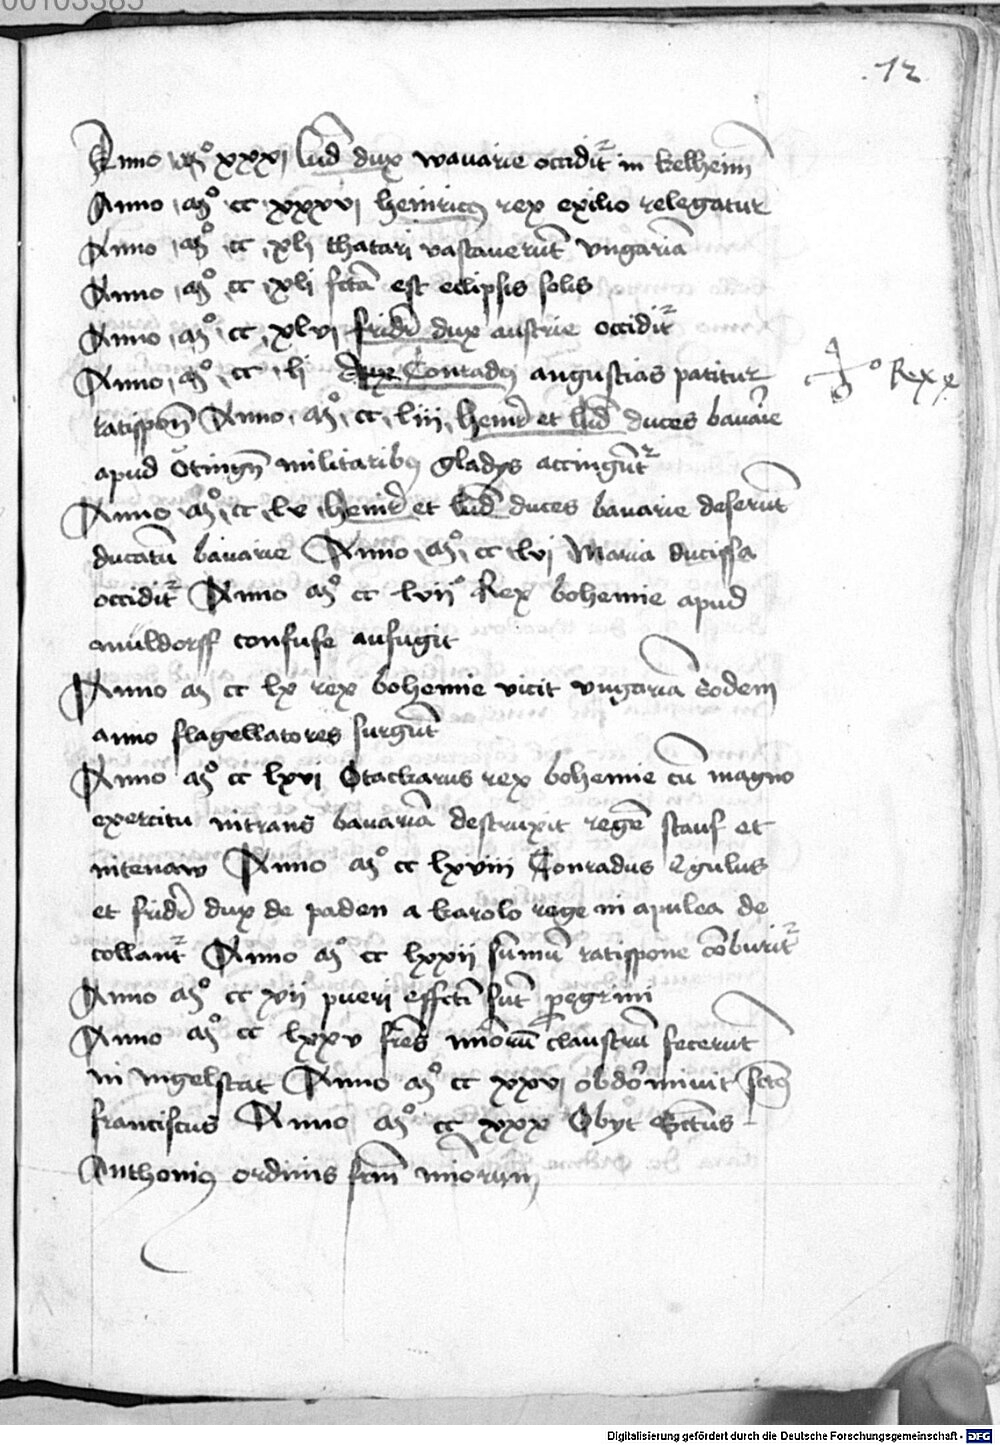 00103385
12
Anno mº xxxi lud dux wauarie occidit in kelheim
Anno mº cc xxxvi heinricus rex exilio relegatur
Anno mº cc xli thatari vastauerut vngaria
Anno mº cc xli fcta est eclipsis solis
Anno mº cc xlvi fridr dux austrie occidit
Anno mº cc li Conradus angustias patitur
º Rex
ratispon Anno mº cc liii heinr et lud duces bauarie
apud Otingn militaribus gladys accingut
Anno mº cc lv heinr et lud duces bauarie deserut
ducatu bauarie Anno mº cc lvi Maria ducissa
occidit Anno mº cc lvii Rex bohemie apud
muldorff confuse aufugit
Anno m cc lx rex bohemie vicit vngaria Eodem
anno flagellatores surgut
Anno mº cc lxvi Otackarus rex bohemie cu magno
exercitu intrans bauaria destruxit regen stauf et
nitenaw Anno mº cc lxviii Conradus regulus
et fridr dux de paden a karolo rege in apulea de
collant Anno mº cc lxxii summu ratispone coburit
Anno mº cc xii pueri effcti sut pegrini
Anno mº cc lxxv fres minoru claustru fecerut
in ingelstat Anno mº cc xxvi obdormivit sctus
franciscus Anno mº cc xxx Obyt Sctus
Anthonius ordinis frm minorum
Digitalisierung gefördert durch die Deutsche Forschungsgemeinschaft - DFG